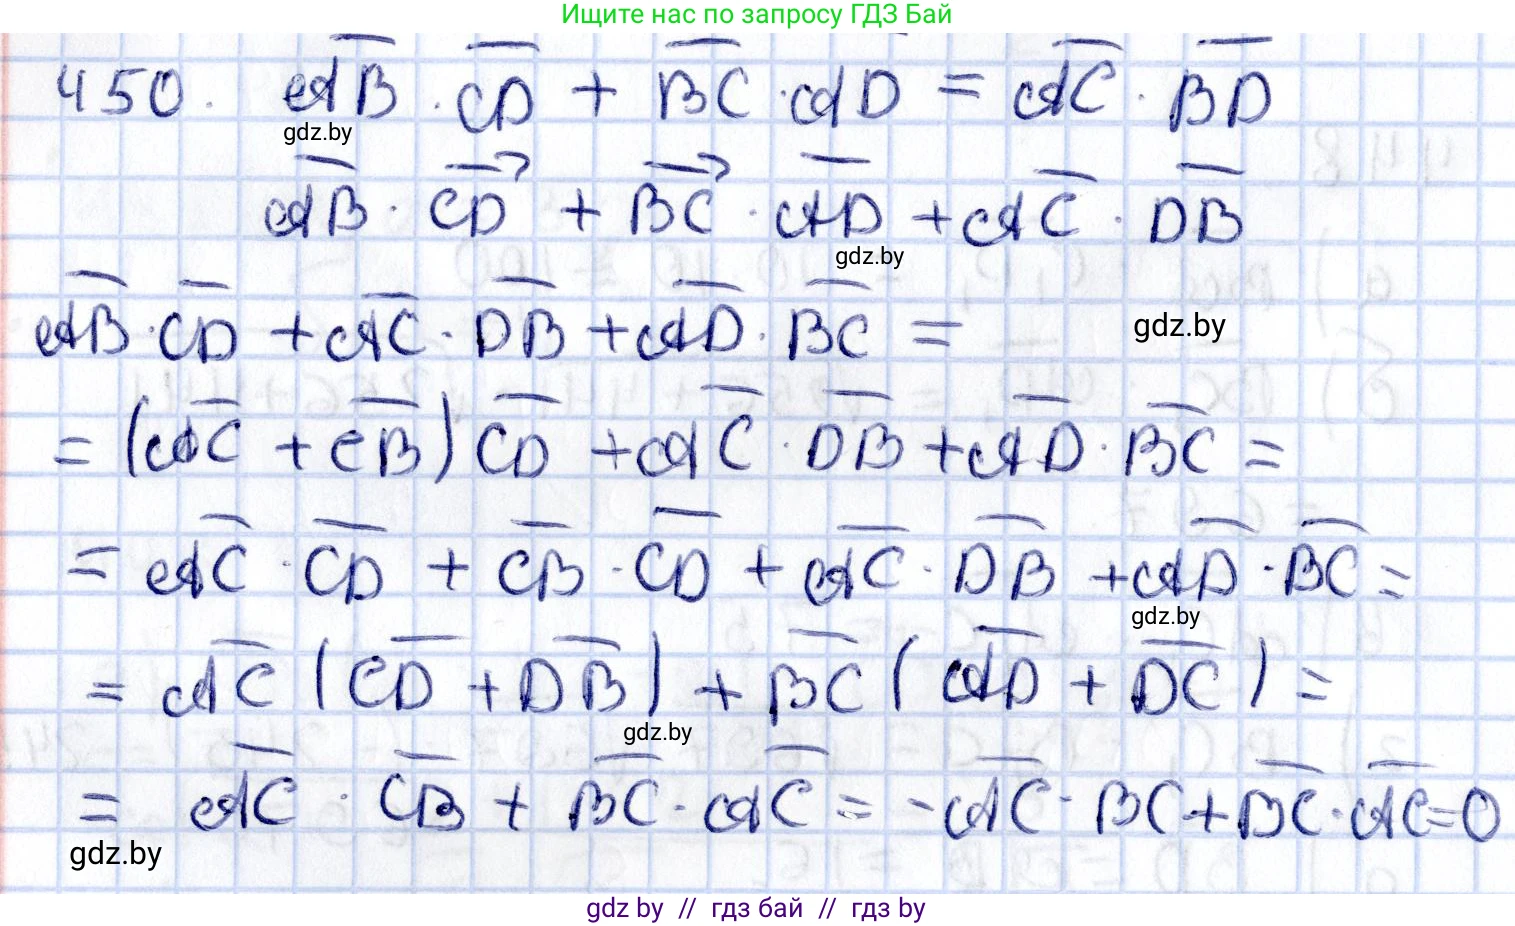 Ищите нас по запросу ГДЗ Бай
450. AB · CD + BC · AD = AC · BD
gdz.by
AB · CD + BC · AD + AC · DB
gdz.by
AB · CD + AC · DB + AD · BC =
gdz.by
= (AC + CB) CD + AC · DB + AD · BC =
= AC · CD + CB · CD + AC · DB + AD · BC =
gdz.by
= AC (CD + DB) + BC (AD + DC) =
gdz.by
= AC · CB + BC · AC = - AC · BC + BC · AC = 0
gdz.by
gdz by // гдз бай // гдз by